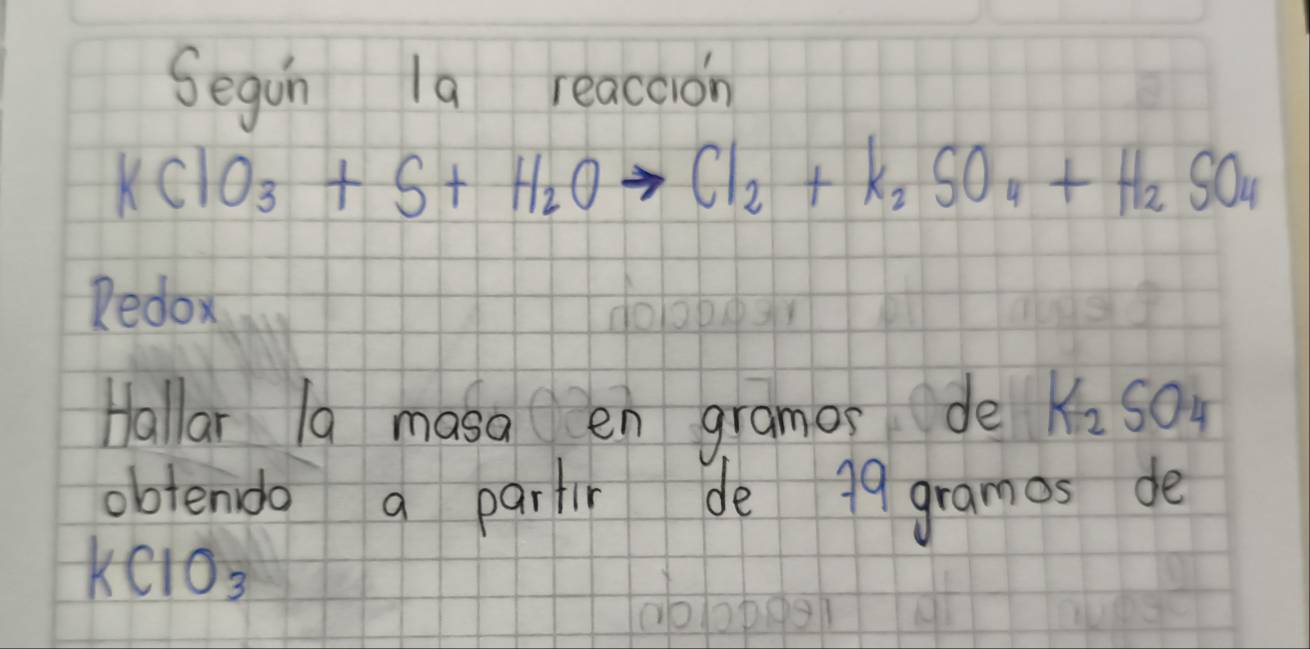 Según la reacción
KClO₃ + S + H₂O → Cl₂ + k₂ SO₄ + H₂ SO₄
Redox
Hallar la masa en gramos de K₂SO₄
obtenido a partir de 79 gramos de
KClO₃